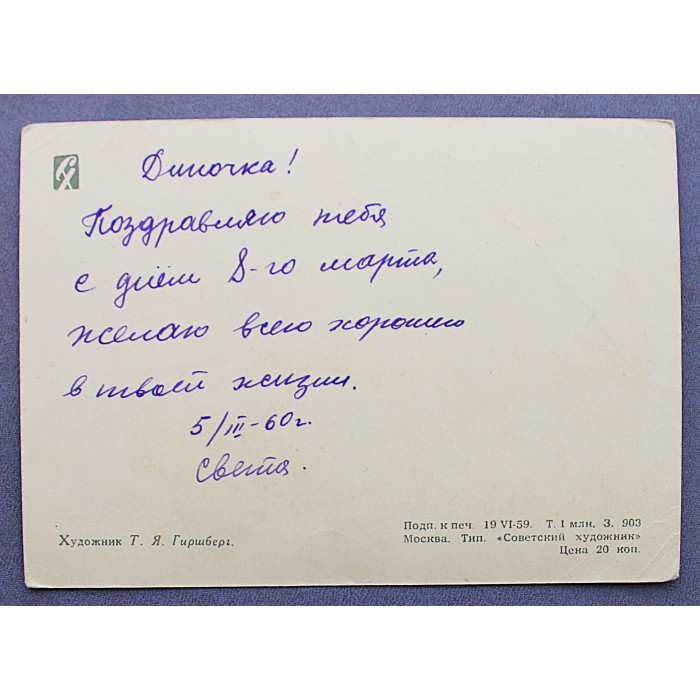 Диночка!
Поздравляю тебя
с днём 8-го марта,
желаю всего хорошего
в твоей жизни.
5/III-60г.
Света.
Художник Т. Я. Гиршберг.
Подп. к печ. 19 VI-59. Т. 1 млн. З. 903
Москва. Тип. «Советский художник»
Цена 20 коп.